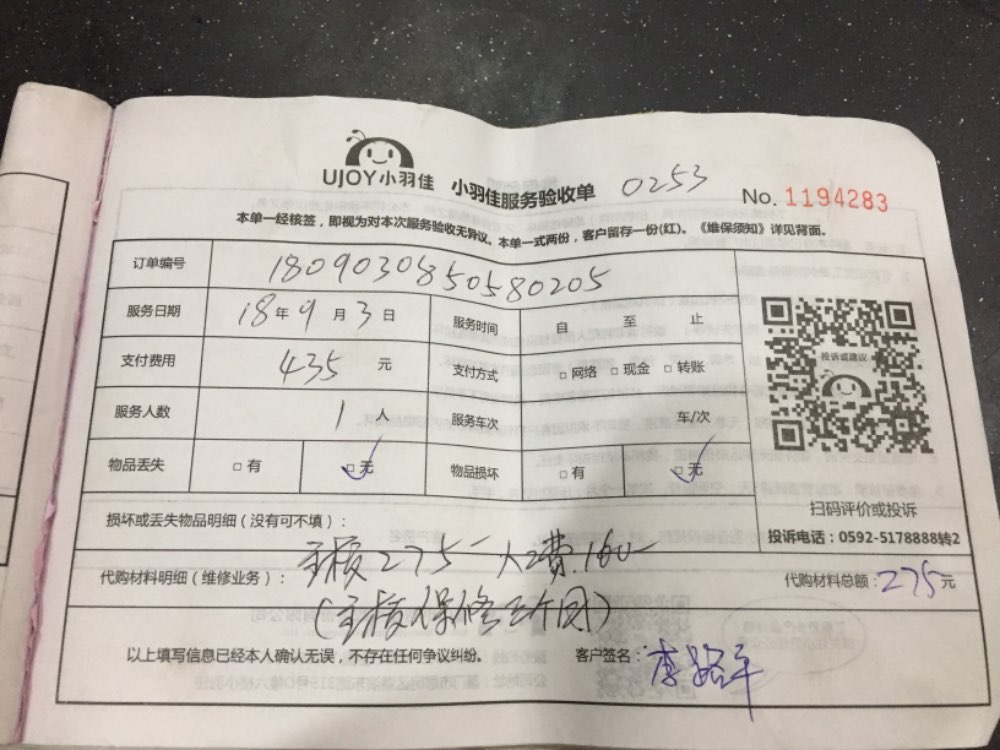 UJOY小羽佳 小羽佳服务验收单 0253 No. 1194283
本单一经核签，即视为对本次服务验收无异议。本单一式两份，客户留存一份(红)。《维保须知》详见背面。
订单编号 1809030850580205
服务日期 18年 9月 3日 服务时间 自 至 止
支付费用 435 元 支付方式 □网络 □现金 □转账
服务人数 1 人 服务车次 车/次
物品丢失 □有 □无 物品损坏 □有 □无
投诉或建议
扫码评价或投诉
投诉电话：0592-5178888转2
损坏或丢失物品明细（没有可不填）：
代购材料明细（维修业务）： 主板275 人工费160 代购材料总额：275元
（主板保修三个月）
以上填写信息已经本人确认无误，不存在任何争议纠纷。 客户签名：李路平